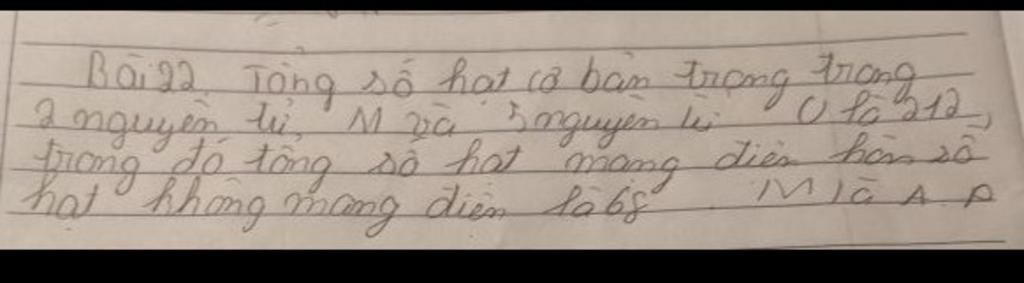 Bài 22. Tổng số hạt cơ bản trong trong
2 nguyên tử, M và 5 nguyên tử O là 212,
trong đó tổng số hạt mang điện hơn số
hạt không mang điện là 68. M là A P